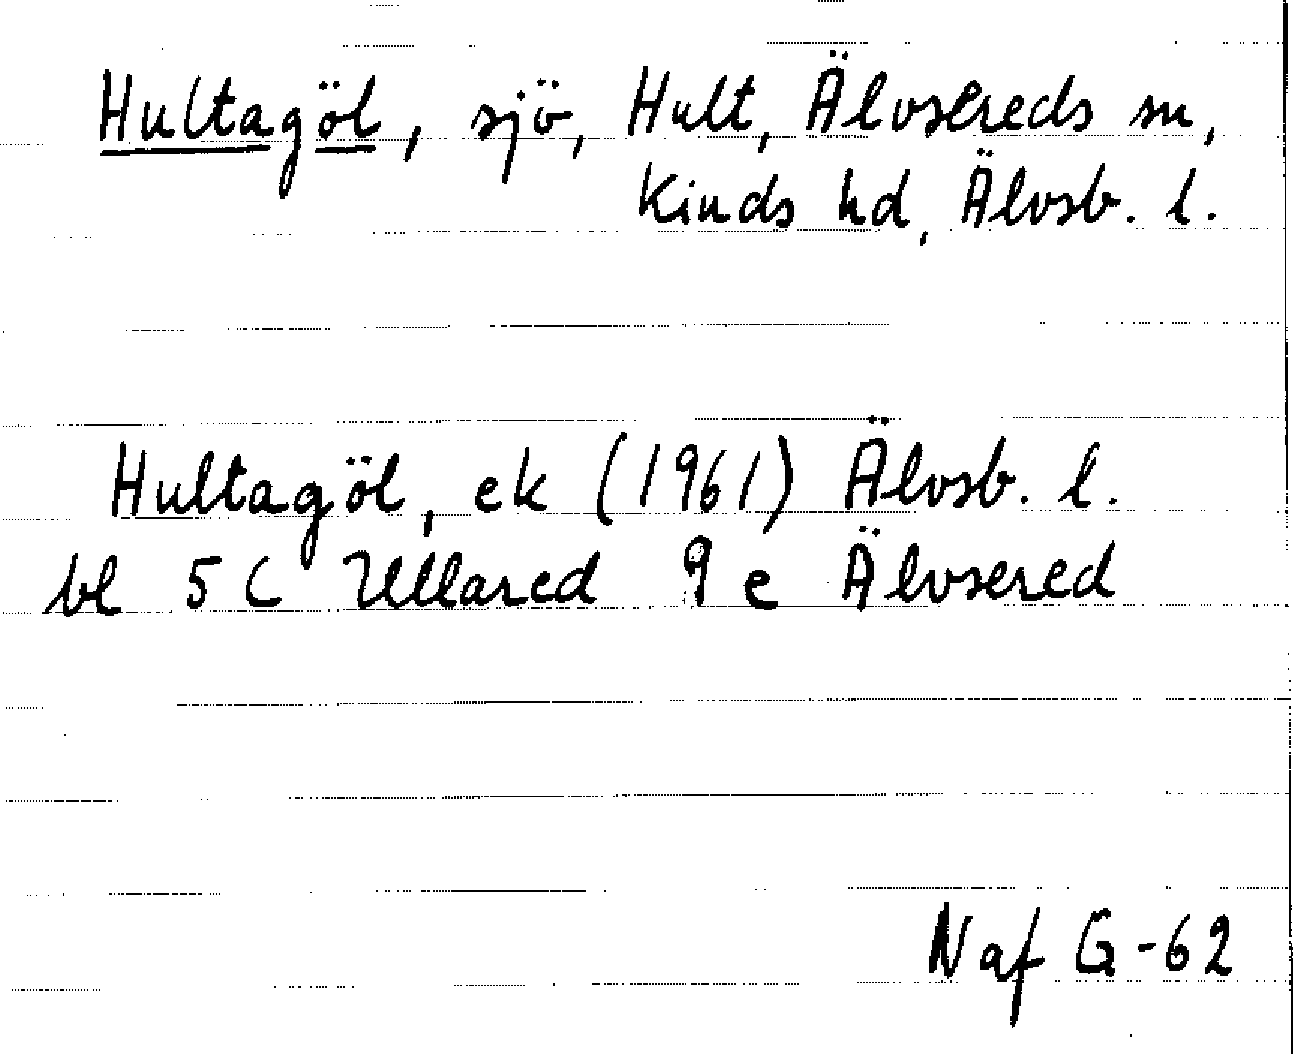 Hultagöl, sjö, Hult, Älvsereds sn,
Kinds hd, Älvsb. l.
Hultagöl, ek (1961) Älvsb. l.
bl 5 C Ullared 9 e Älvsered
Naf G-62